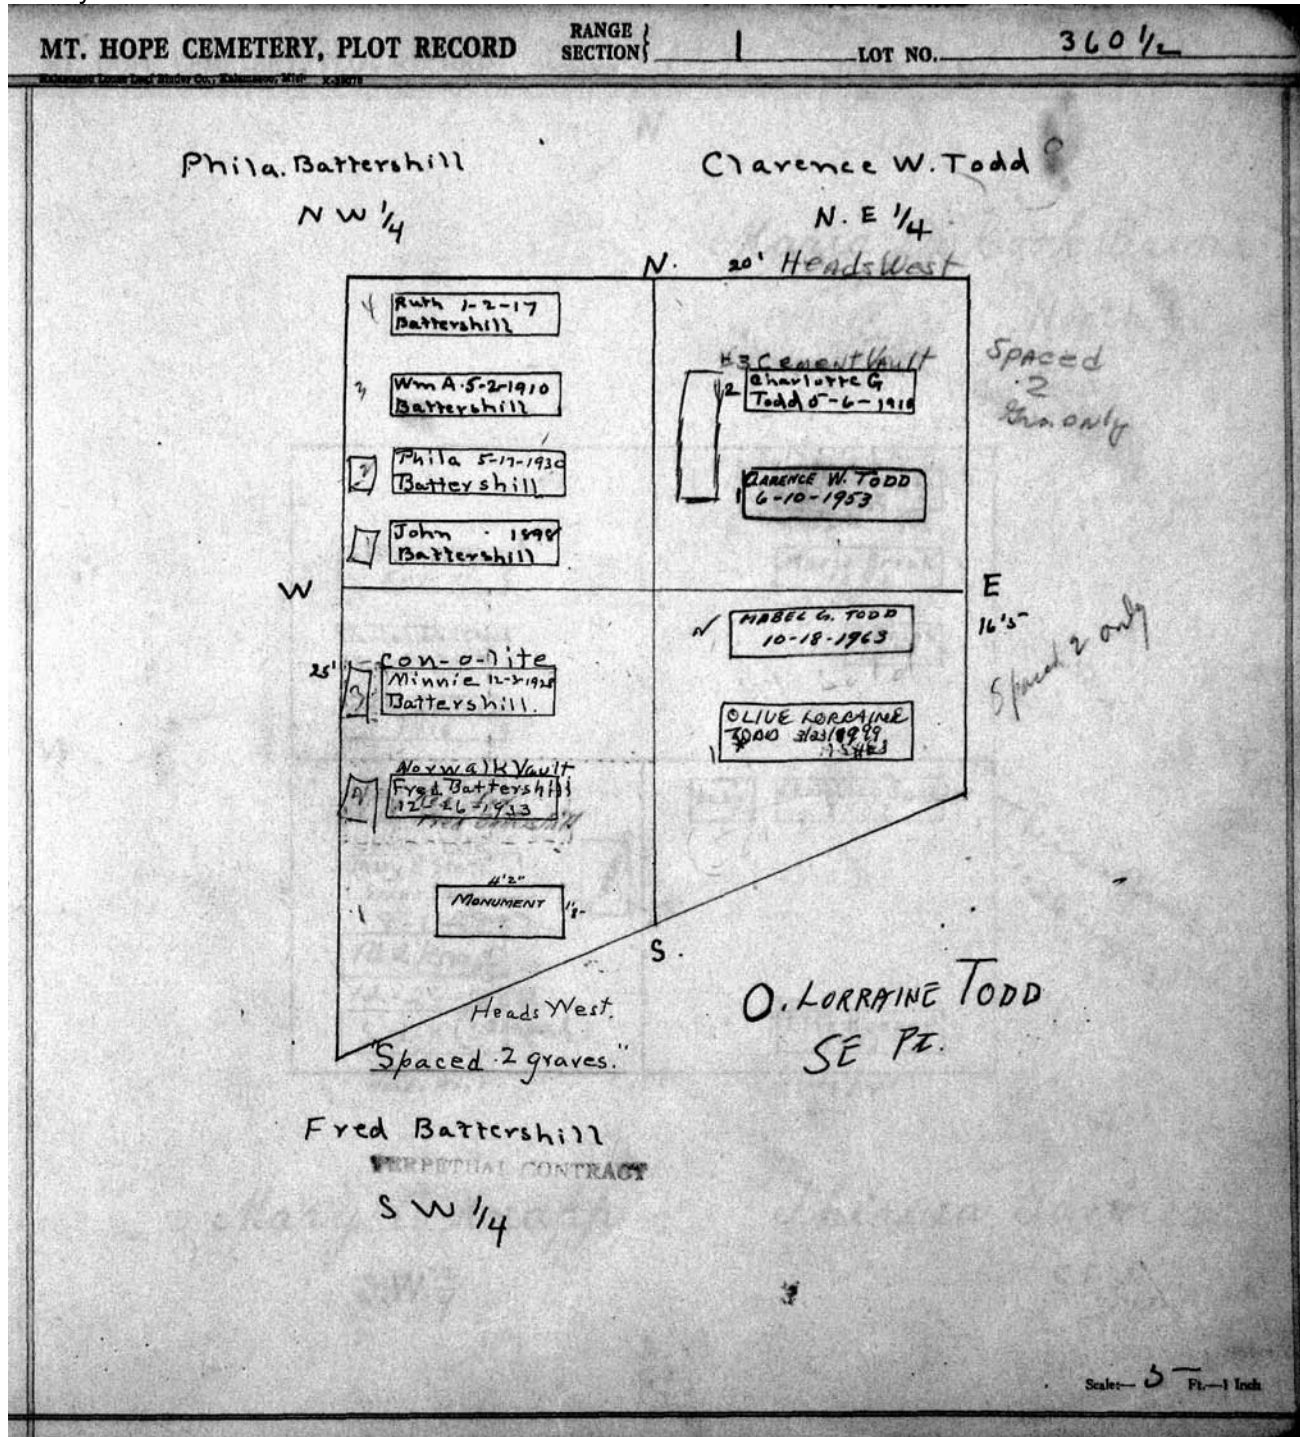 MT. HOPE CEMETERY, PLOT RECORD
RANGE
SECTION
1
LOT NO. 360 1/2
Kalamazoo Loose Leaf Binder Co., Kalamazoo, Mich.
Phila. Battershill
N W 1/4
Clarence W. Todd
N. E 1/4
N.
20' Heads West
4
Ruth 1-2-17
Battershill
3
Wm A. 5-2-1910
Battershill
2
Phila 5-17-1930
Battershill
1
John 1898
Battershill
#3 Cement Vault
2
Charlotte G
Todd 5-6-1918
1
CLARENCE W. TODD
6-10-1953
Spaced
2
only
W
E
16'5"
Spaced 2 only
2
MABEL G. TODD
10-18-1963
1
OLIVE LORRAINE
TODD 3/23/1999
25'
Con-o-lite
3
Minnie
Battershill.
Norwalk Vault
2
Fred Battershill
12-26-1933
Fred Battershill
1
4'2"
MONUMENT
1'8"
S.
Heads West.
"Spaced 2 graves."
O. LORRAINE TODD
SE PT.
Fred Battershill
PERPETUAL CONTRACT
S W 1/4
Scale:— 5 Ft.—1 Inch